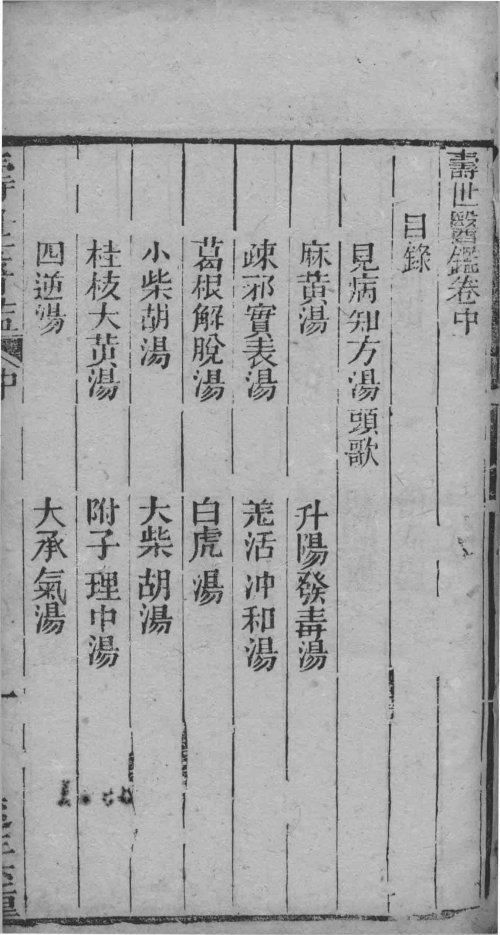 壽世醫鑑卷中
目錄
見病知方湯頭歌
麻黃湯 升陽發毒湯
疎邪實表湯 羗活冲和湯
葛根解脫湯 白虎湯
小柴胡湯 大柴胡湯
桂枝大黃湯 附子理中湯
四逆湯 大承氣湯
中 一